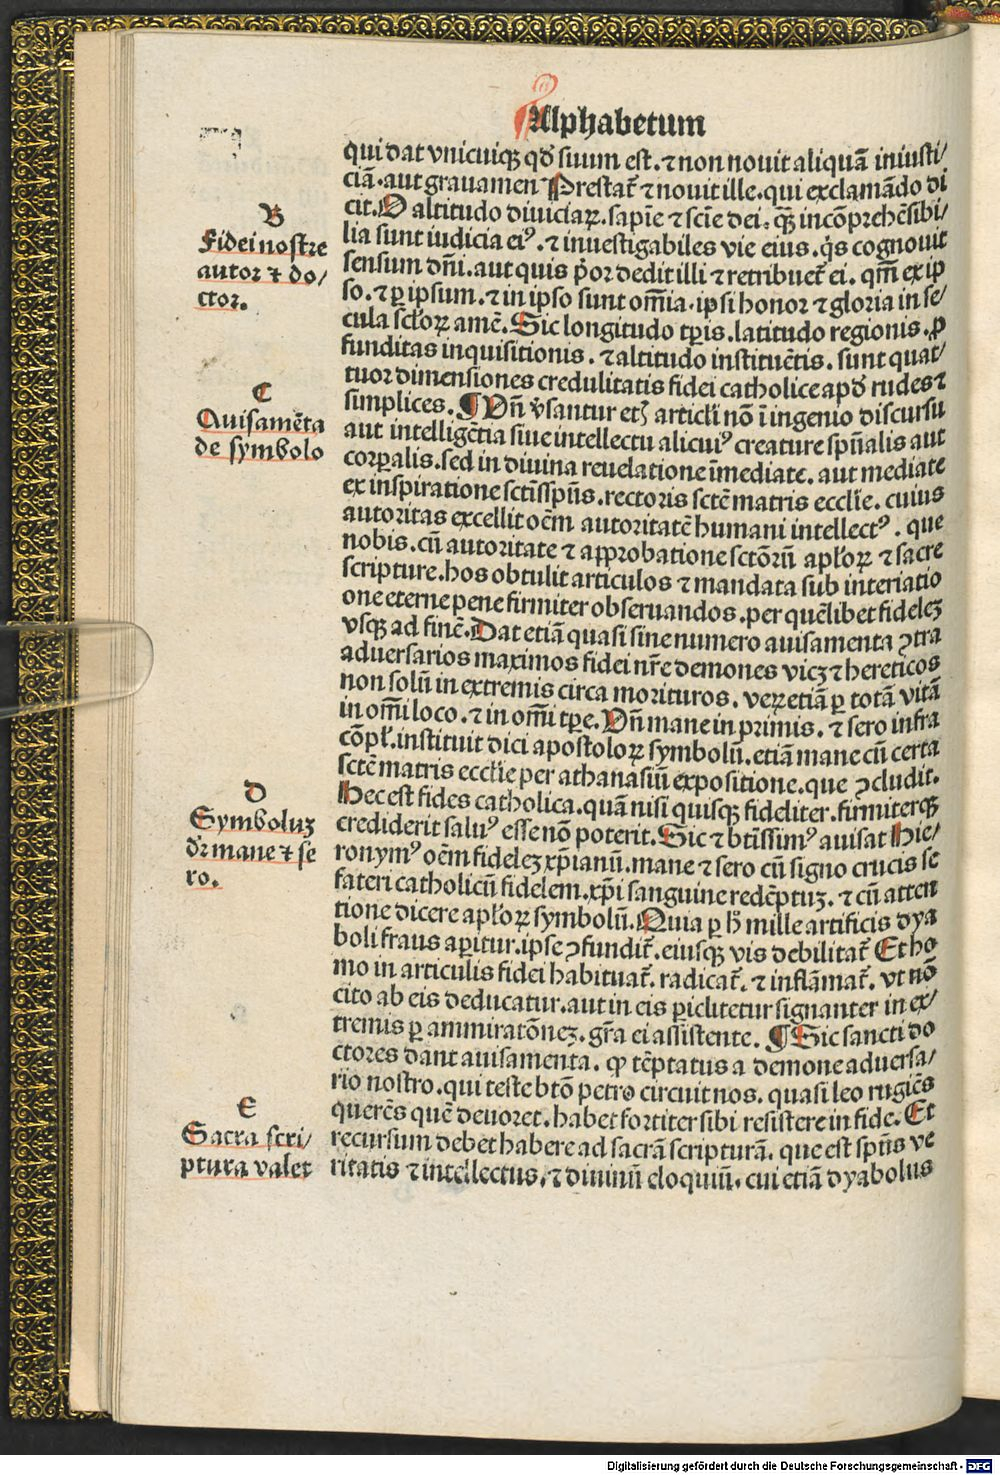 Alphabetum
qui dat vnicuiqꝫ qđ suum est. ⁊ non nouit aliquā iniusti/
ciā. aut grauamen Prestat᷑ ⁊ nouit ille. qui exclamādo di
cit. O altitudo diuiciaꝝ. sapīe ⁊ scīe dei. q̄ꝫ incōprehēsibi/
lia sunt iudicia eiꝰ. ⁊ inuestigabiles vie eius. q̇s cognouit
sensum dn̄i. aut quis p̓or dedit illi ⁊ retribuet᷑ ei. qm̄ ex ip
so. ⁊ ꝑ ipsum. ⁊ in ipso sunt om̄ia. ipsi honor ⁊ gloria in se/
cula scl̓oꝝ amē. Sic longitudo tꝑis. latitudo regionis. ꝓ
funditas inquisitionis. ⁊ altitudo instituētis. sunt quat/
tuor dimensiones credulitatis fidei catholice apđ rudes ⁊
simplices. ¶ Vn̄ v̓santur etꝫ articl̓i nō ī ingenio discursu
aut intelligētia siue intellectu alicuiꝰ creature spūalis aut
corꝑalis. sed in diuina reuelatione īmediate. aut mediate
ex inspiratione sctīsspūs. rectoris sctē matris eccl̓ie. cuius
autoritas excellit oēm autoritatē humani intellectꝰ. que
nobis. cū autoritate ⁊ aꝓprobatione sctōrū apl̓oꝝ ⁊ sacre
scripture. hos obtulit articulos ⁊ mandata sub interiatio
one eterne pene firmiter obseruandos. per quēlibet fideleꝫ
vsqꝫ ad finē. Dat etiā quasi sine numero auisamenta ꝯtra
aduersarios maximos fidei nr̄e demones vicꝫ ⁊ hereticos
non solū in extremis circa morituros. veꝝ etiā ꝑ totā vitā
in om̄i loco. ⁊ in om̄i tꝑe. Vn̄ mane in primis. ⁊ sero infra
cōpl̓. instituit dici apostoloꝝ symbolū. etiā mane cū certa
sctē matris eccl̓ie per athanasiū expositione. que ꝯcludit.
Hec est fides catholica. quā nisi quisqꝫ fideliter. firmiterqꝫ
crediderit saluꝰ esse nō poterit. Sic ⁊ btīssimꝰ auisat Hie/
ronymꝰ oēm fideleꝫ xp̄ianū. mane ⁊ sero cū signo crucis se
fateri catholicū fidelem. xp̄i sanguine redēptuꝫ. ⁊ cū atten
tione dicere apl̓oꝝ symbolū. Quia ꝑ h̄ mille artificis dya
boli fraus aꝑitur. ipse ꝯfundit᷑. eiusqꝫ vis debilitat᷑ Et ho
mo in articulis fidei habituat᷑. radicat᷑. ⁊ inflāmat᷑. vt nō
cito ab eis deducatur. aut in eis ꝑiclitetur signanter in ex/
tremis ꝑ ammiratōneꝫ. gr̄a ei assistente. ¶ Sic sancti do
ctores dant auisamenta. ꝙ tēptatus a demone aduersa/
rio nostro. qui teste btō petro circuit nos. quasi leo rugiēs
querēs quē deuoret. habet fortiter sibi resistere in fide. Et
recursum debet habere ad sacrā scripturā. que est spūs ve
ritatis ⁊ intellectus. ⁊ diuinū eloquiū. cui etiā dyabolus
B
Fidei nostre
autor ⁊ do/
ctor.
C
Auisamēta
de symbolo
D
Symboluꝫ
dr̄ mane ⁊ se
ro.
E
Sacra scri/
ptura valet
Digitalisierung gefördert durch die Deutsche Forschungsgemeinschaft - DFG